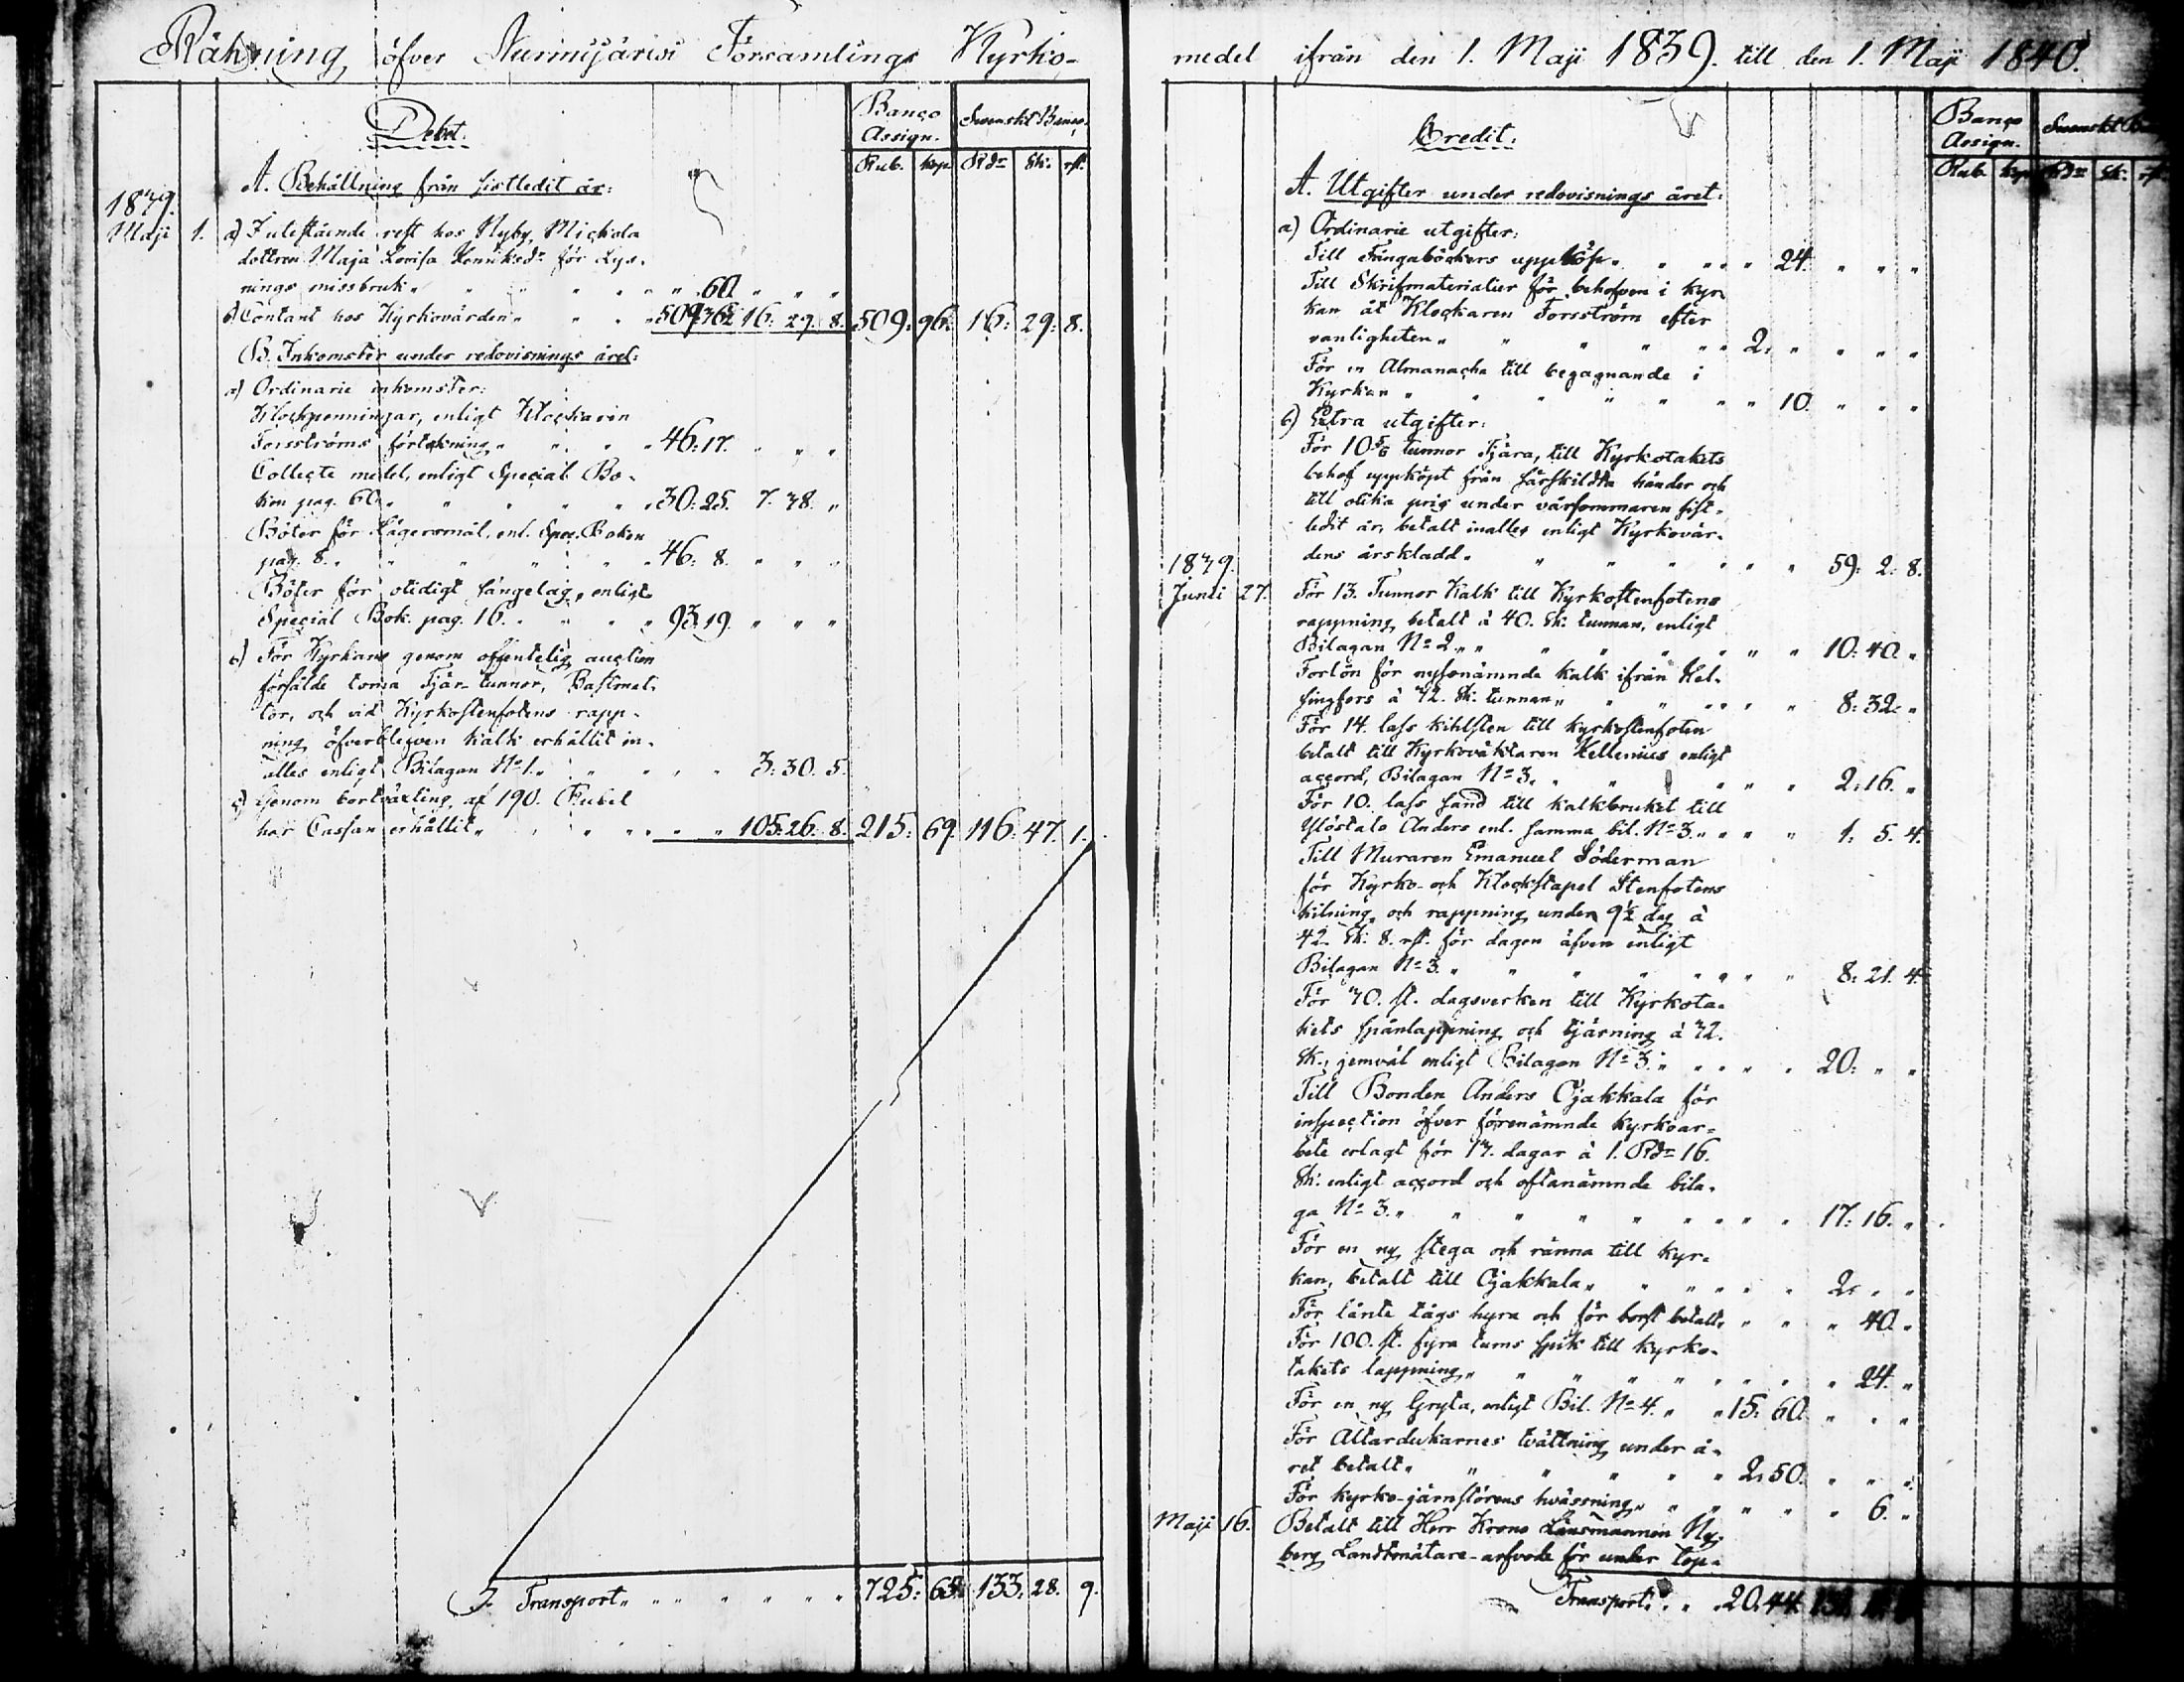 Räkning öfver Nurmijärvi Församlings Kyrko-
Debet.
Banco Assign.
Swenskt Banco.
Rub. kop. Rdr Sk: rst.
A. Behållning från sistledit år:
1839.
Maji 1. a) Innestående rest hos Nyby, Mickola
dottren Maja Lovisa Henriksdr för Lys-
nings missbruk " " " " " " 60. " " "
b) Contant hos Kyrkovärden " " " 509:36. 16: 29. 8. 509: 96. 16: 29: 8.
B. Inkomster under redovisnings året:
a) Ordinarie inkomster:
Klockpenningar, enligt Klockaren
Forsströms förtekning " " " " 46:17. " " "
Collecte medel, enligt Special Bo-
ken pag. 60. " " " " " 30:25. 7. 38. "
Böter för Lägersmål, enl. Spec. Boken
pag. 8. " " " " " 46: 8. " " "
Böter för otidigt sängelag, enligt
Special Bok. pag. 16. " " " " 93:19. " " "
b) För Kyrkans genom offentelig auction
försålde toma Tjär-tunnor, Bastmat-
tor, och vid Kyrkostenfotens rapp-
ning öfverblefven kalk erhållit in-
alles enligt Bilagan No 1. " " " " " 3: 30. 5.
c) Genom bortväxling af 190. Rubel
har Cassan erhållit " " " " " " 105:26. 8. 215: 69. 116: 47. 1.
Transport " " " " " " " 725: 65. 133. 28. 9.
medel ifrån den 1. Maji 1839. till den 1. Maji 1840.
Credit.
Banco Assign.
Swenskt
Rub. kop. Rdr Sk: rst.
A. Utgifter under redovisnings året:
a) Ordinarie utgifter:
Till Fångaböckers uppköp " " " " " 24. " " "
Till Skrifmaterialier för behofven i kyr-
kan åt Klockaren Forsström efter
vanligheten " " " " " " 2: " " " "
För en Almanacha till begagnande i
Kyrkan " " " " " " " 10. " " "
b) Extra utgifter:
För 10 5/6 tunnor Tjära, till Kyrkotakets
behof uppköpt från särskildta händer och
till olika pris under vårsommaren sist-
ledit år, betalt inalles enligt Kyrkovär-
dens årskladd " " " " " " 59: 2: 8.
1839.
Junii 27. För 13. Tunnor Kalk till Kyrkostenfotens
rappning, betalt à 40. Sk: tunnan, enligt
Bilagan No 2. " " " " " " " " 10: 40. "
Forlön för nyssnämnde kalk ifrån Hel-
singfors à 32. Sk: tunnan " " " " " " 8: 32: "
För 14. lass kihlsten till kyrkostenfoten
betalt till Kyrkoväktaren Hellenius enligt
accord, Bilagan No 3. " " " " " 2: 16. "
För 10. lass sand till kalkbruket till
Ylöstalo Anders enl. samma bil. No 3. " " " " 1: 5. 4.
Till Muraren Emanuel Söderman
för Kyrko- och Klockstapel Stenfotens
kilning, och rappning under 9½ dag à
42. Sk: 8. rst. för dagen äfven enligt
Bilagan No 3. " " " " " " " 8: 21. 4.
För 30. st. dagsverken till Kyrkota-
kets spånlappning och tjärning à 32.
Sk., jemväl enligt Bilagan No 3. " " " " " 20: " "
Till Bonden Anders Ojakkala för
inspection öfver förenämnde kyrkoar-
bete erlagt för 13. dagar à 1. Rdr 16.
Sk: enligt accord och oftanämnde bila-
ga No 3. " " " " " " " " " 17: 16. "
För en ny stega och ränna till kyr-
kan, betalt till Ojakkala " " " " " " 2: " "
För länte tågs hyra och för borst betalt " " " 40. "
För 100. st. fyra tums spik till kyrko-
takets lappning " " " " " " " " 24. "
För en ny Gryta, enligt Bil. No 4. " " 15: 60. " " "
För Altardukarnes tvättning under å-
ret betalt " " " " " " 2: 50. " " "
För kyrko-järnstörens hvässning " " " " " " 6. "
Maji 16. Betalt till Herr Krono Länsmannen Ny-
berg Landtmätare-arfvode för under
Transport " " " 20. 44.